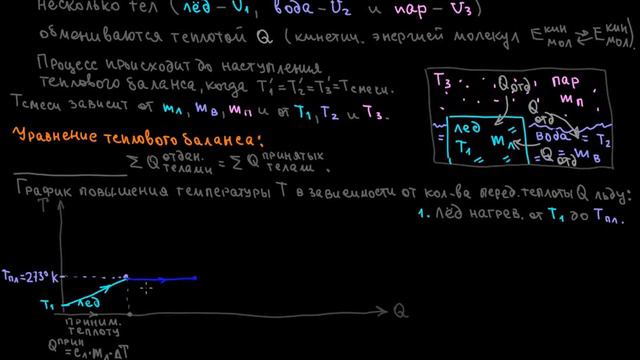 несколько тел (лёд – U1, вода – U2 и пар – U3)
обмениваются теплотой Q (кинетич. энергией молекул Eкин мол ⇄ Eкин мол)
Процесс происходит до наступления
теплового баланса, когда T1'=T2'=T3'=Tсмеси.
Tсмеси зависит от mл, mв, mп и от T1, T2 и T3.
T3 Qотд пар mп
Q отд
лед T1 mл
вода = T2
Q отд mв
Уравнение теплового баланса:
∑ Q отдан. телами = ∑ Q принятых телам.
График повышения температуры T в зависимости от кол-ва перед. теплоты Q льду:
1. Лёд нагрев. от T1 до Tпл.
T
Tпл=273° K
T1
лёд
Q
приним. теплоту
Qприн = cл·mл·ΔT